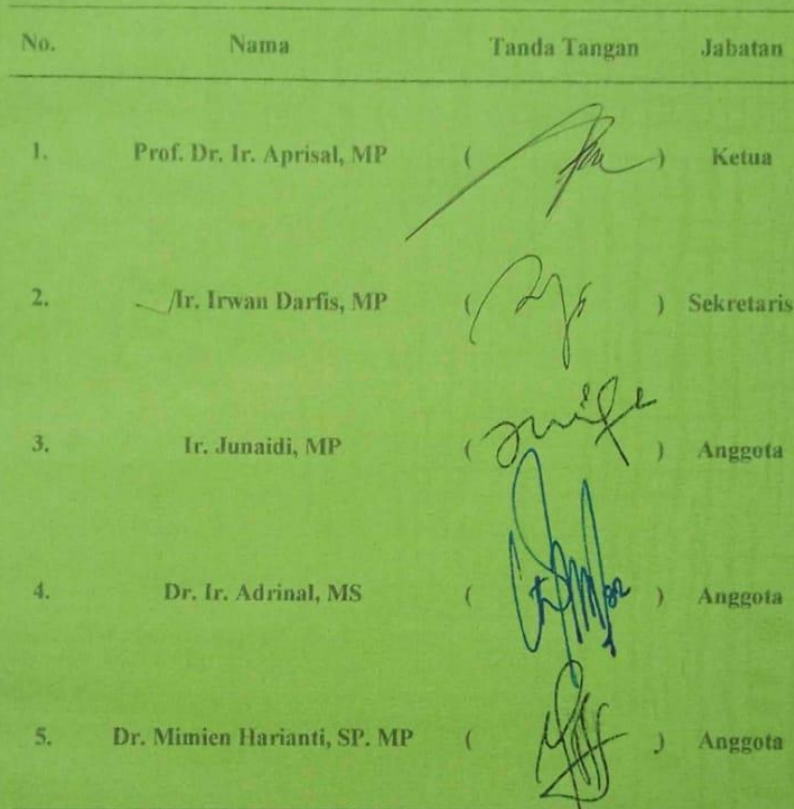 No. Nama Tanda Tangan Jabatan
1. Prof. Dr. Ir. Aprisal, MP ( ) Ketua
2. Ir. Irwan Darfis, MP ( ) Sekretaris
3. Ir. Junaidi, MP ( ) Anggota
4. Dr. Ir. Adrinal, MS ( ) Anggota
5. Dr. Mimien Harianti, SP. MP ( ) Anggota